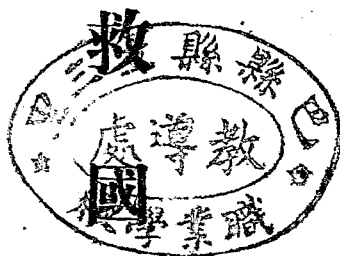 救國
巴縣縣
教導處
職業學校